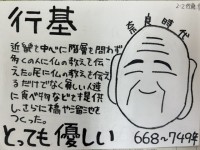 行基
奈良時代
近畿を中心に階層を問わず
多くの人に仏の教えを伝
えた。民に仏の教えを伝え
るだけでなく貧しい人達
に食べ物などを提供
し、さらに橋や溜池を
つくった。
とっても優しい
668〜749年